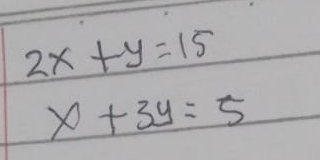 2x + y = 15
x + 3y = 5